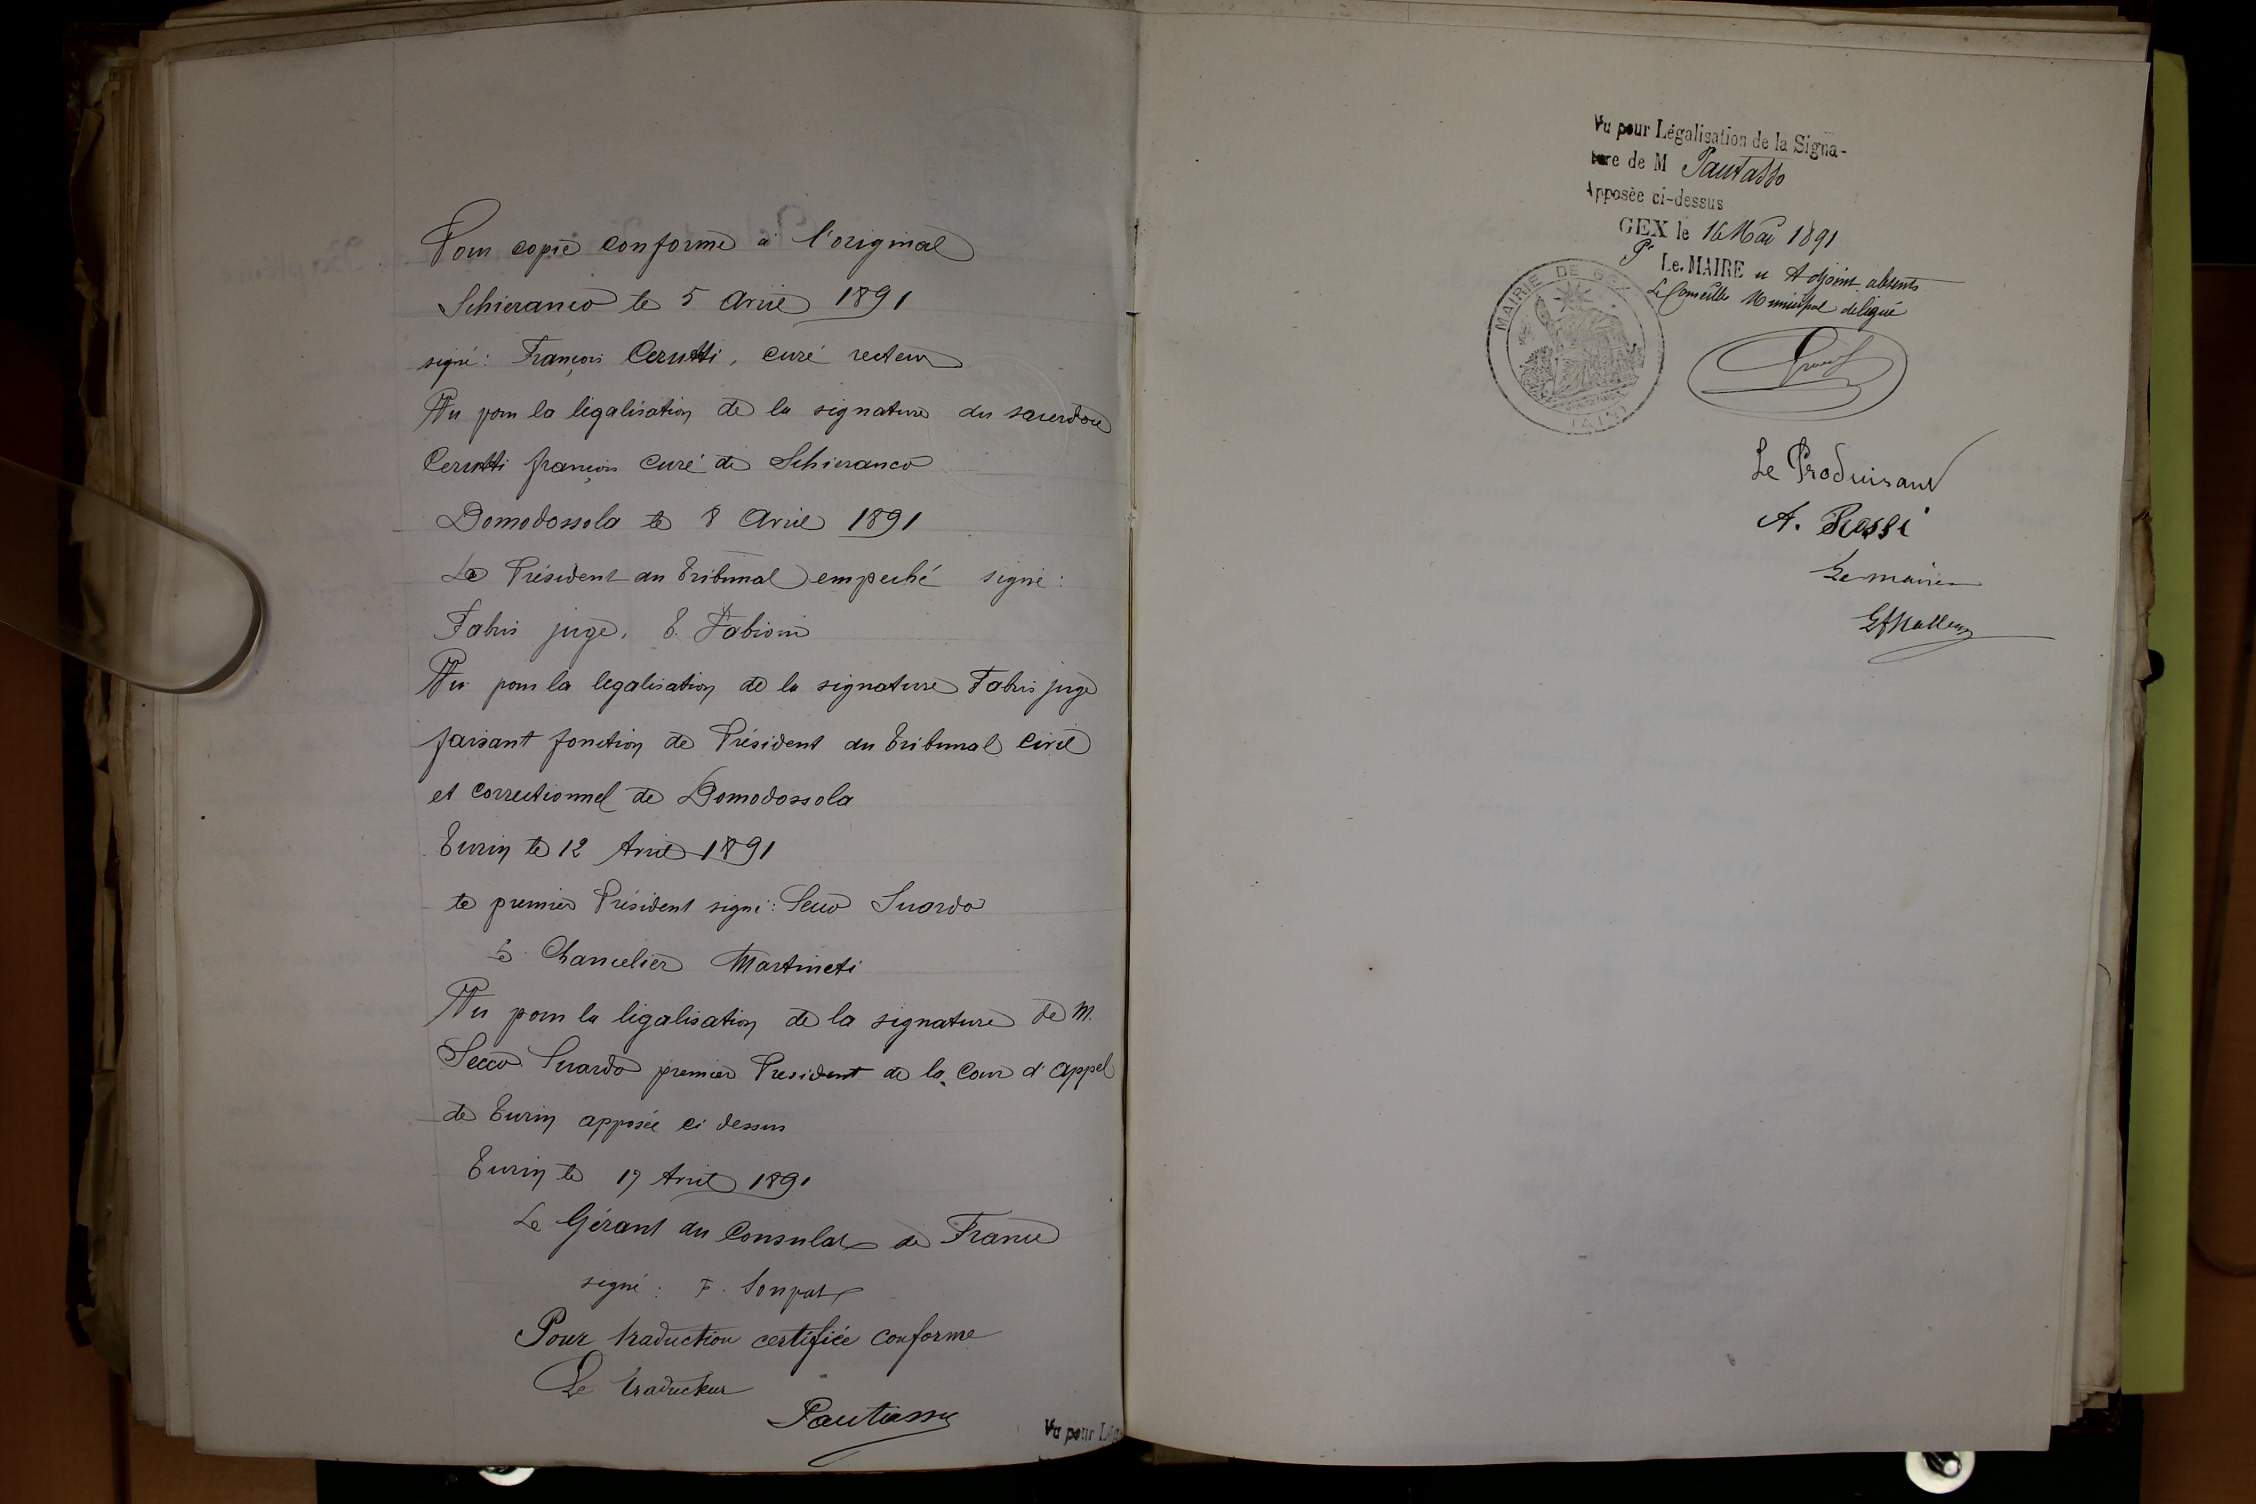 Pour copie conforme à l'original
Schieranco le 5 Avril 1891
signé: François Cerutti, curé recteur
Vu pour la légalisation de la signature du sacerdoce
Cerutti françois curé de Schieranco
Domodossola le 8 Avril 1891
Le Président du Tribunal empeché signé:
Fabris juge. E. Fabioni
Vu pour la legalisation de la signature Fabris juge
faisant fonction de Président du Tribunal Civil
et correctionnel de Domodossola
Turin le 12 Avril 1891
le premier Président signé: Secco Suardo
Le Chancelier Martineti
Vu pour la légalisation de la signature de M.
Secco Suardo premier President de la Cour d'Appel
de Turin apposée ci dessus
Turin le 17 Avril 1891
Le Gérant du Consulat de France
signé: F.
Pour traduction certifiée conforme
Le traducteur
Pautasso
Vu pour Lég
Vu pour Légalisation de la Signa-
ture de M Pautasso
Apposée ci-dessus
GEX le 16 Mai 1891
Pr Le MAIRE et Adjoint absents
Le Conseiller Municipal délégué
MAIRIE DE GEX
(AIN)
Le Produisant
A. Rossi
Le maire